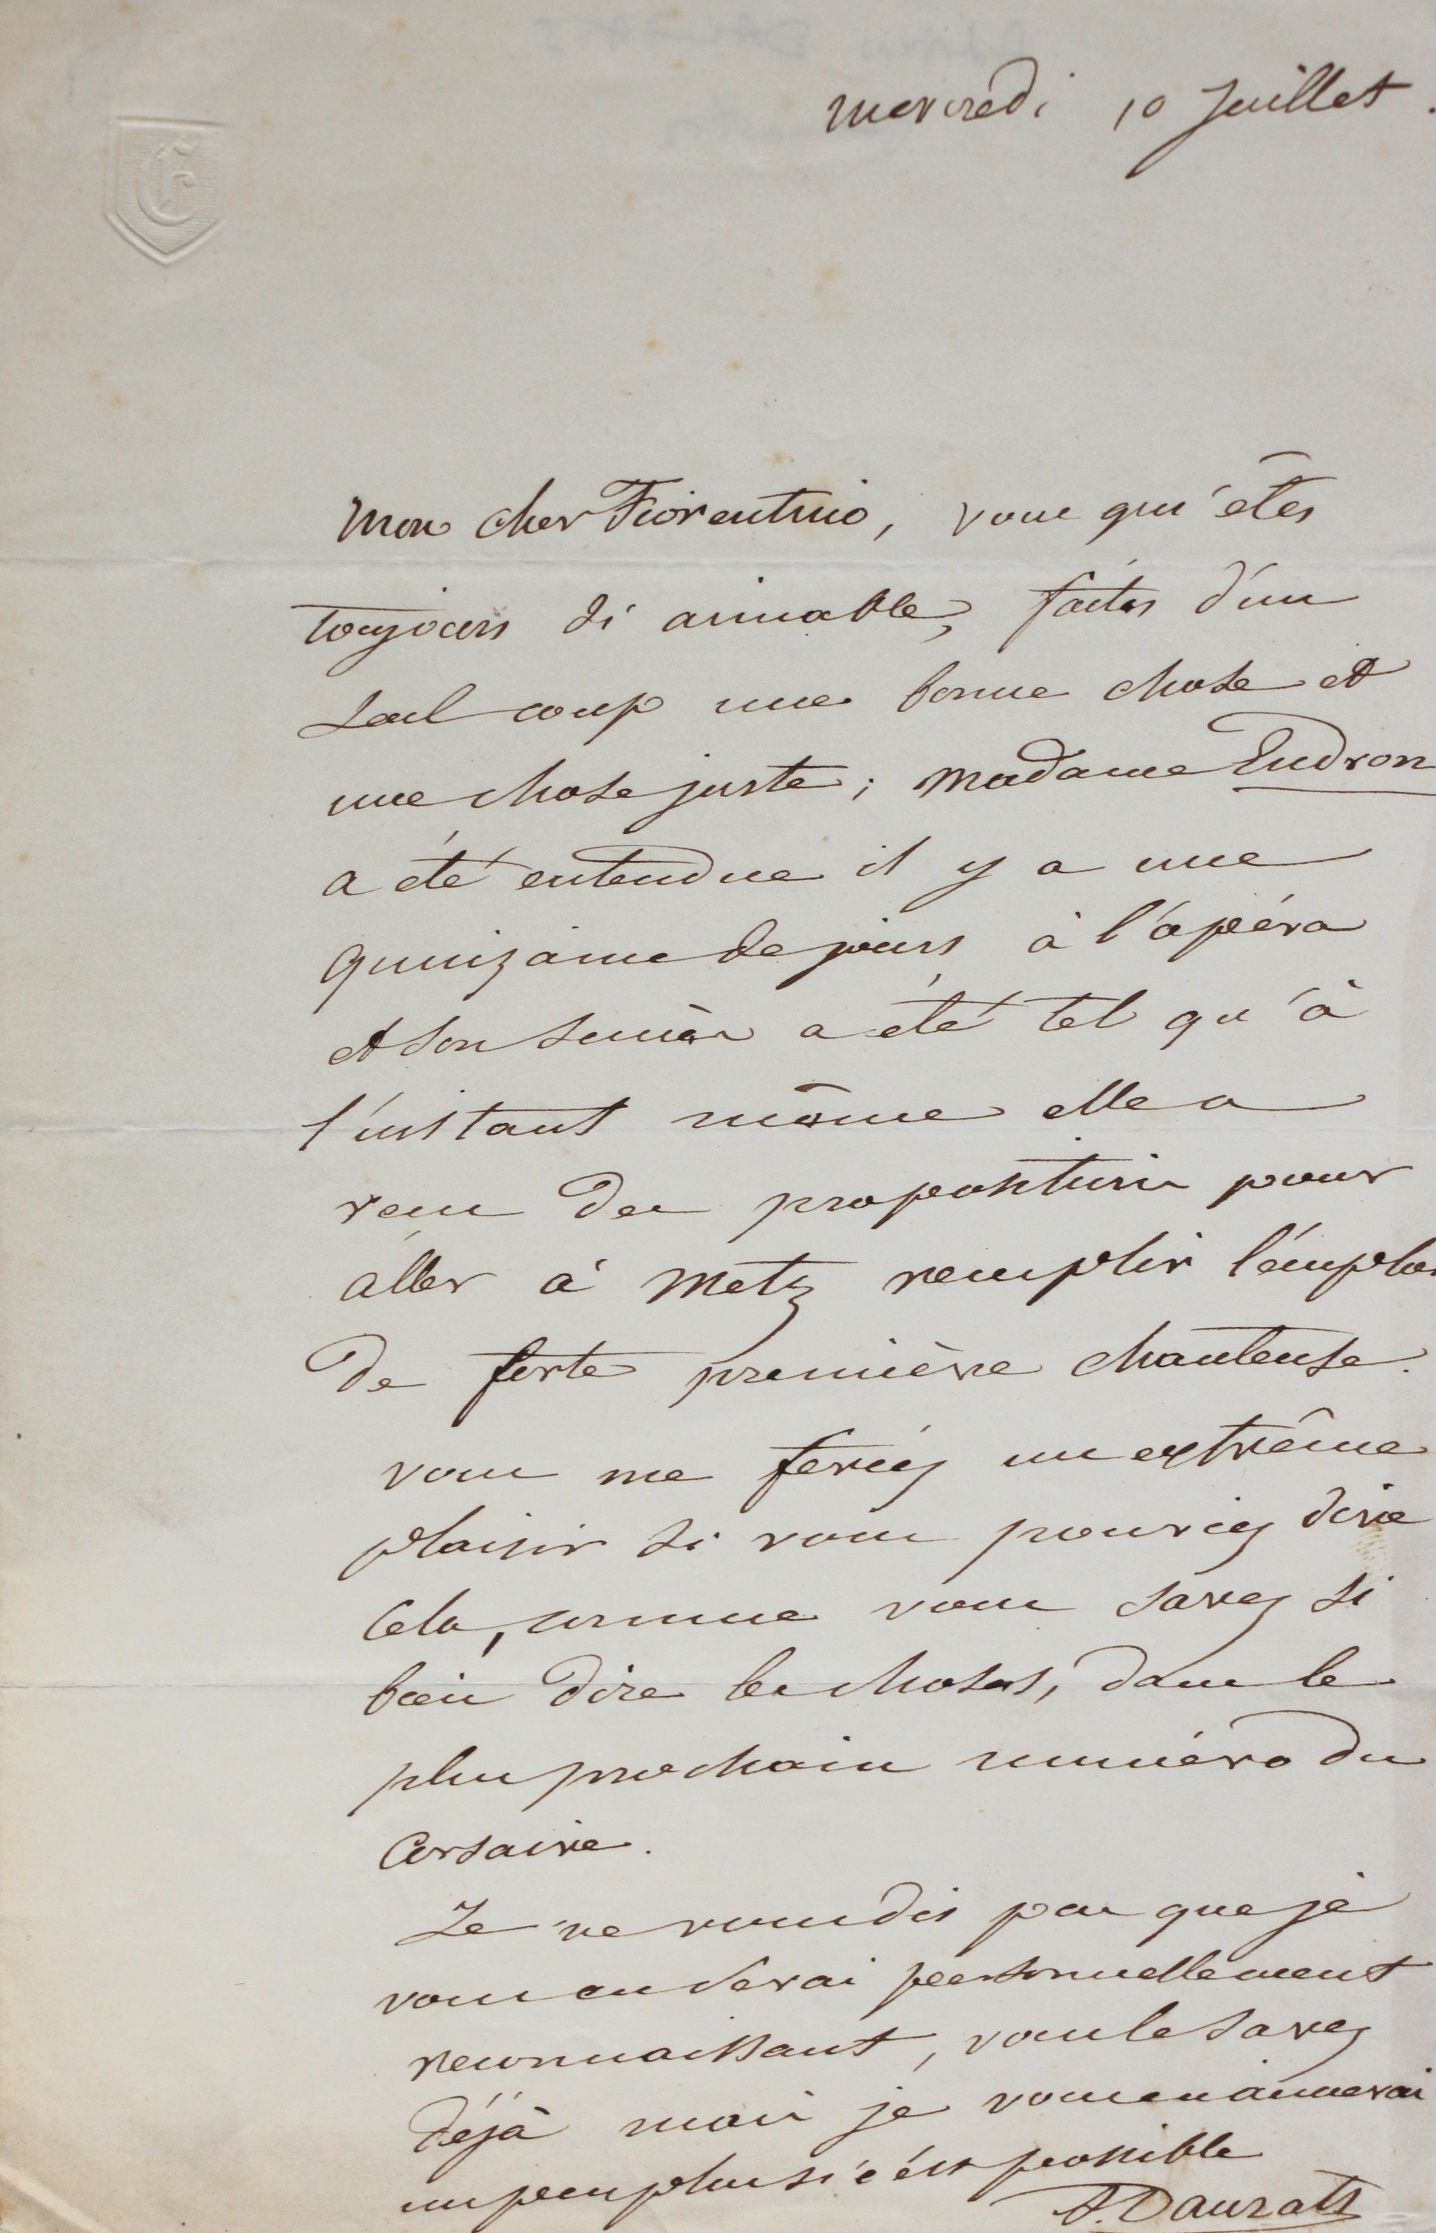 mercredi 10 Juillet.
Mon cher Fiorentino, vous qui êtes
toujours si aimable, faites d'un
seul coup une bonne chose et
une chose juste; Madame Eudron
a été entendue il y a une
quinzaine de jours à l'opéra
et son succès a été tel qu'à
l'instant même elle a
reçu des propositions pour
aller à Metz remplir l'emploi
de forte première chanteuse.
vous me feriez un extrême
plaisir si vous pouviez dire
cela, comme vous savez si
bien dire les choses, dans le
plus prochain numéro du
Corsaire.
Je ne vous dis pas que je
vous en serai personnellement
reconnaissant, vous le savez
déjà mais je vous en aimerai
un peu plus si c'est possible
A. Dauzats